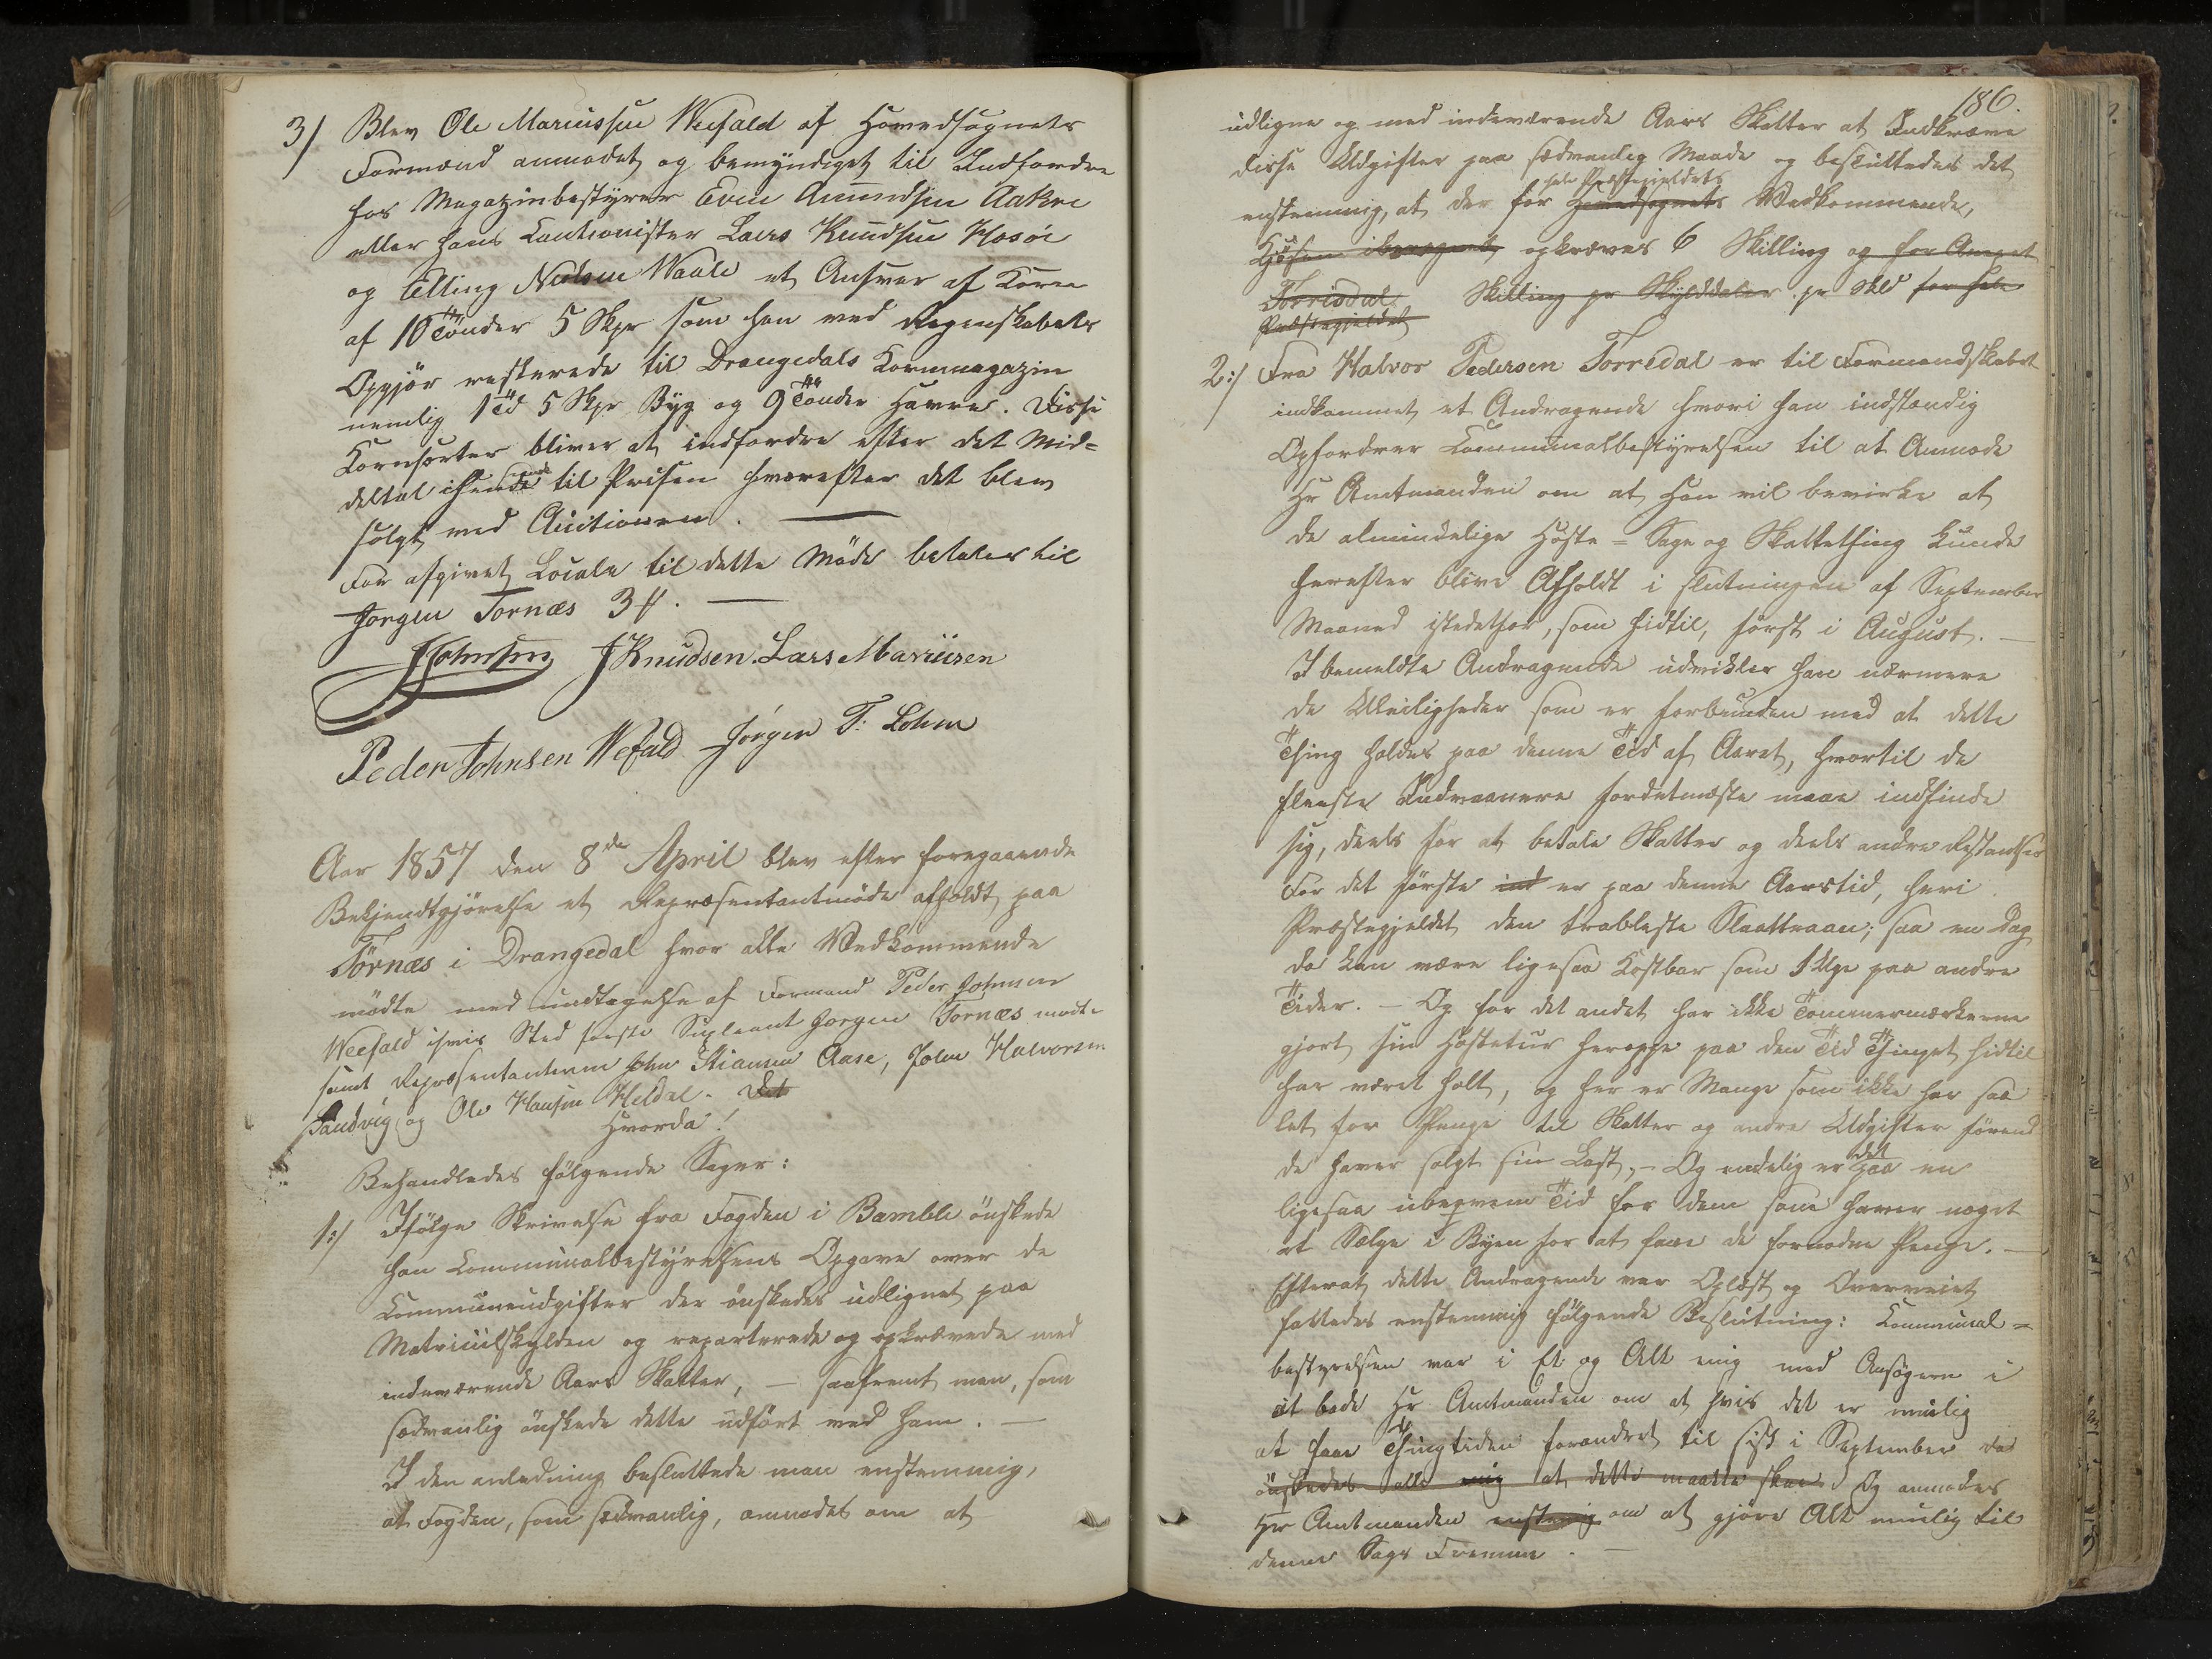 3/ Blev Ole Mariussen Weefald af Hovedsognets
Formænd anmodet og bemyndiget til Indfordre
hos Magazinbestyrer Even Amundsen Aakre
eller hans Cautionister Lars Knudsen Hosöe
og Elling Nielsen Waale et Ansvar af Korn
af 10 Tönder 5 Skpr som han ved Regnskabets
Opgjör resterede til Drangedals Kornmagazin
nemlig 1 Td 5 Skpr Byg og 9 Tönder Havre. Disse
Kornsorter bliver at indfordre efter det Mid=
deltal til Prisen hvorefter det blev
solgt ved Auctionen. —
For afgivet Locale til dette Möde betales til
Jörgen Tornæs 3 ₰. —
JJohnsen JKnudsen. Lars Mariusen
Peder Johnsen Wefald Jörgen T. Lohne
Aar 1857 den 8de April blev efter foregaaende
Bekjendtgjörelse et Repræsentantmöde afholdt paa
Törnæs i Drangedal hvor alle Vedkommende
mödte med undtagelse af Formand Peder Johnsen
Weefald i hvis Sted förste Supleant Jörgen Tornæs mödte
samt Repræsentanterne John Stiansen Aase, John Halvorsen
Sandvig og Ole Hansen Heldal. Det
Hvorda!
Behandledes fölgende Sager:
1:/ Ifölge Skrivelse fra Fogden i Bamble önskede
han Communalbestyrelsens Opgave over de
Communeudgifter der önskedes udlignet paa
Matriculskylden og reparterede og opkrævede med
indeværende Aars Skatter, — saafremt man, som
sædvanlig önskede dette udfört ved ham. —
I den anledning besluttede man enstemmig,
at Fogden, som sædvanlig, anmodes om at
186.
udligne og med indeværende Aars Skatter at Indkræve
disse Udgifter paa sædvanlig Maade og besluttedes det
hele Præstegjeldets
enstemmig, at der for Hovedsognets Vedkommende,
opkræves 6 Skilling og for Annexet
Törisdal Skilling pr Skylddaler pr Skld for hele
Præstegjeldet
2:/ Fra Halvor Pedersen Torredal er til Formandskabet
indkommet et Andragende hvori han indstændig
Opfordrer Communalbestyrelsen til at Anmode
Hr Amtmanden om at Han vil bevirke at
de almindelige Höste= Sage og Skattething kunde
herefter blive Afholdt i slutningen af September
Maaned istedetfor, som hidtil, först i August. —
I bemeldte Andragende udvikler han nærmere
de Uleiligheder som er forbunden med at dette
Thing holdes paa denne Tid af Aaret, hvortil de
fleeste Indvaanere fordetmeste maae indfinde
sig, deels for at betale Skatter og deels andre Restantser
For det förste ind er paa denne Aarstid, heri
Præstegjeldet den travleste Slaattraan; saa en Dag
da kan være ligesaa Kostbar som 1 Uge paa andre
Tider. — Og for det andet har ikke Tömmermærkerne
gjort sin Höstetur heroppe paa den Tid Thinget hidtil
har været holt, og her er Mange som ikke har saa
let for Penge til Skatter og andre Udgifter förend
de haver solgt sin Last, — Og endelig er det paa en
ligesaa ubeqvem Tid for dem som haver noget
at Sælge i Byen for at faae de fornödne Penge. —
Efterat dette Andragende var Oplæst og Overveiet
fattedes enstemmig fölgende Beslutning: Communal=
bestyrelsen var i Et og Alt enig med Ansögeren i
at bede Hr Amtmanden om at hvis det er mulig
at faae Thingtiden forandret til sist i September da
önskedes alle enig at dette maatte skee. Og anmodes
Hr Amtmanden enstemig om at gjöre Alt mulig til
denne Sags Fremme. —